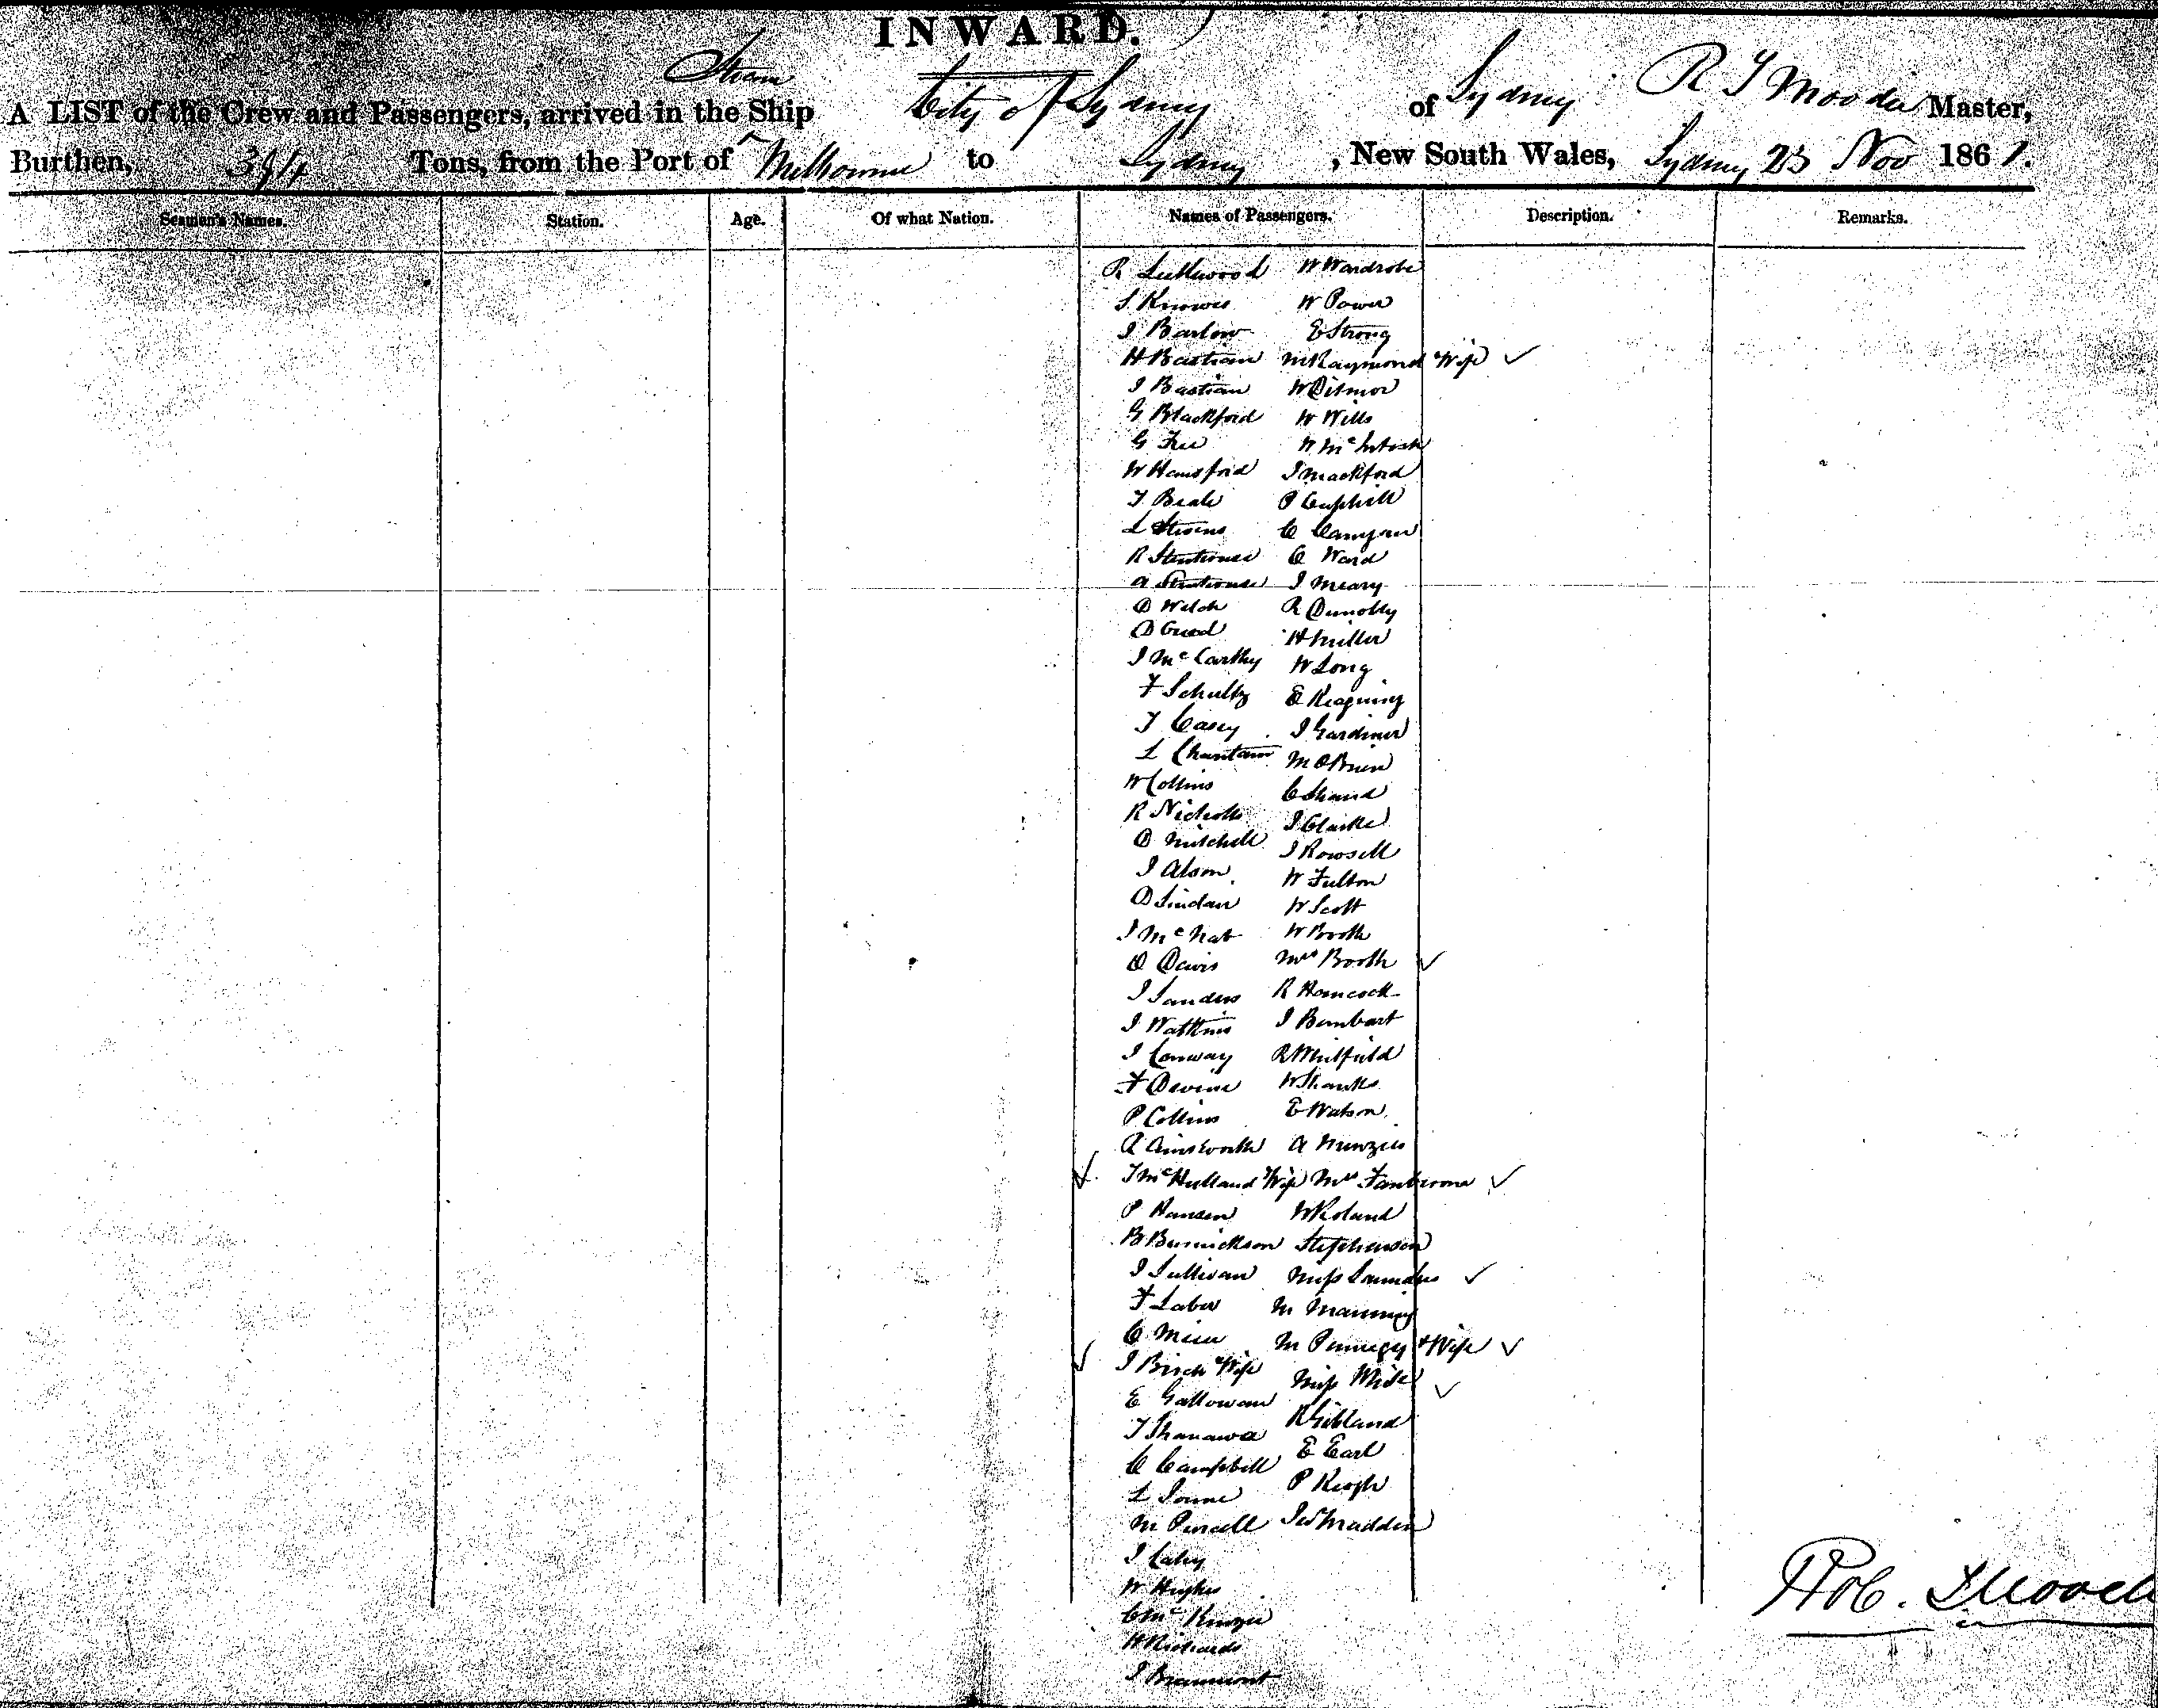 INWARD.
Steam
A LIST of the Crew and Passengers, arrived in the Ship City of Sydney of Sydney R T Moodie Master,
Burthen, Tons, from the Port of Melbourne to Sydney, New South Wales, Sydney 23 Nov 1861.
Seamen's Names. Station. Age. Of what Nation. Names of Passengers. Description. Remarks.
R W Wardrobe
S W Power
J Barlow E Strong
H Bastian M Raymond & Wife ✓
J Bastian W Ditmor
G Blackford W Wills
G Free W McIntosh
W Hansford J Mackford
T Beale P
L Stevens C
R Stenhouse C Ward
A Stenhouse J Meary
D Welch R Dunolly
D H Miller
J McCarthy W Long
F Schultz E
T Casey J Gardiner
L M O'Brien
W Collins C Shand
R Nicholls J Clarke
D Mitchell J Rowsell
J Alson W Fulton
D Sinclair W Scott
J McNab W Booth
D Davis Mrs Booth ✓
J Sanders R Hancock
J Watkins J
J Conway R Whitfield
F Devine W Shanks
P Collins E Watson
A Ainsworth A Menzies
✓ T & Wife Mrs ✓
P Hansen W Roland
B Stephenson
J Sullivan Miss Saunders ✓
F Laber M Manning
C M & Wife ✓
✓ J Birch & Wife Miss ✓
E R
T E Earl
C Campbell P Keogh
L J W Madden
M Purcell
J
W Hughes
C McKenzie
H Richards
J Beaumont
Rob. T Moodie